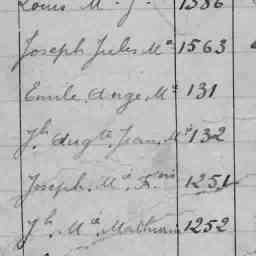 Louis M. J. 1586
Joseph Jules Mie 1563
Emile Ange Mie 131
Jh. Augte Jean Mie 132
Joseph. Mie Frois 1251
Jh. Mie Mathurin 1252